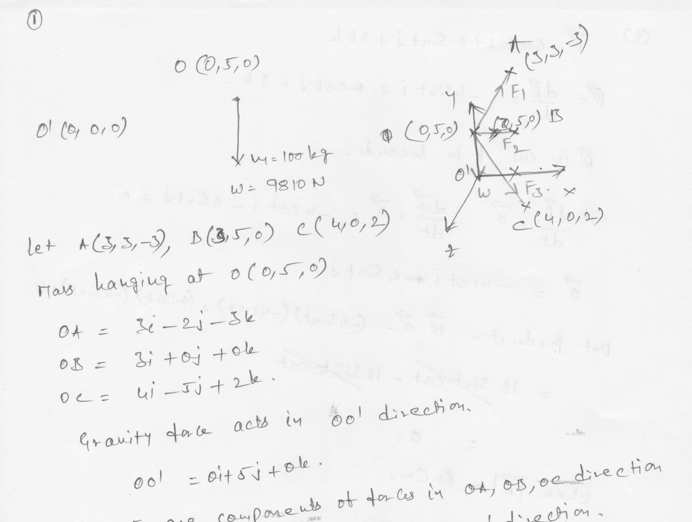 ①
O (0,5,0)
O' (0, 0, 0)
m = 100 kg
W = 9810 N
A (3,3,-3)
F1
y
(0,5,0)
(3,5,0) B
F2
O'
W
F3
x
C (4,0,2)
z
let A(3,3,-3), B(3,5,0) C(4,0,2)
Mass hanging at O(0,5,0)
OA = 3i - 2j - 3k
OB = 3i + 0j + 0k
OC = 4i - 5j + 2k.
Gravity force acts in OO' direction.
OO' = 0i+5j+0k.
are components of forces in OA, OB, OC direction
direction.